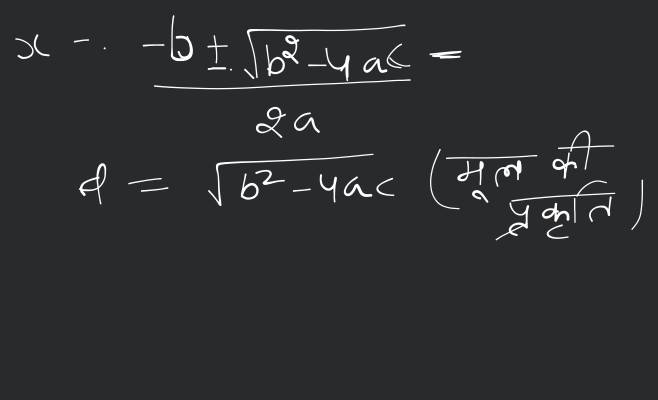 x - . -b ± √b² - 4ac =
2a
d = √b² - 4ac (मूल की
प्रकृति)